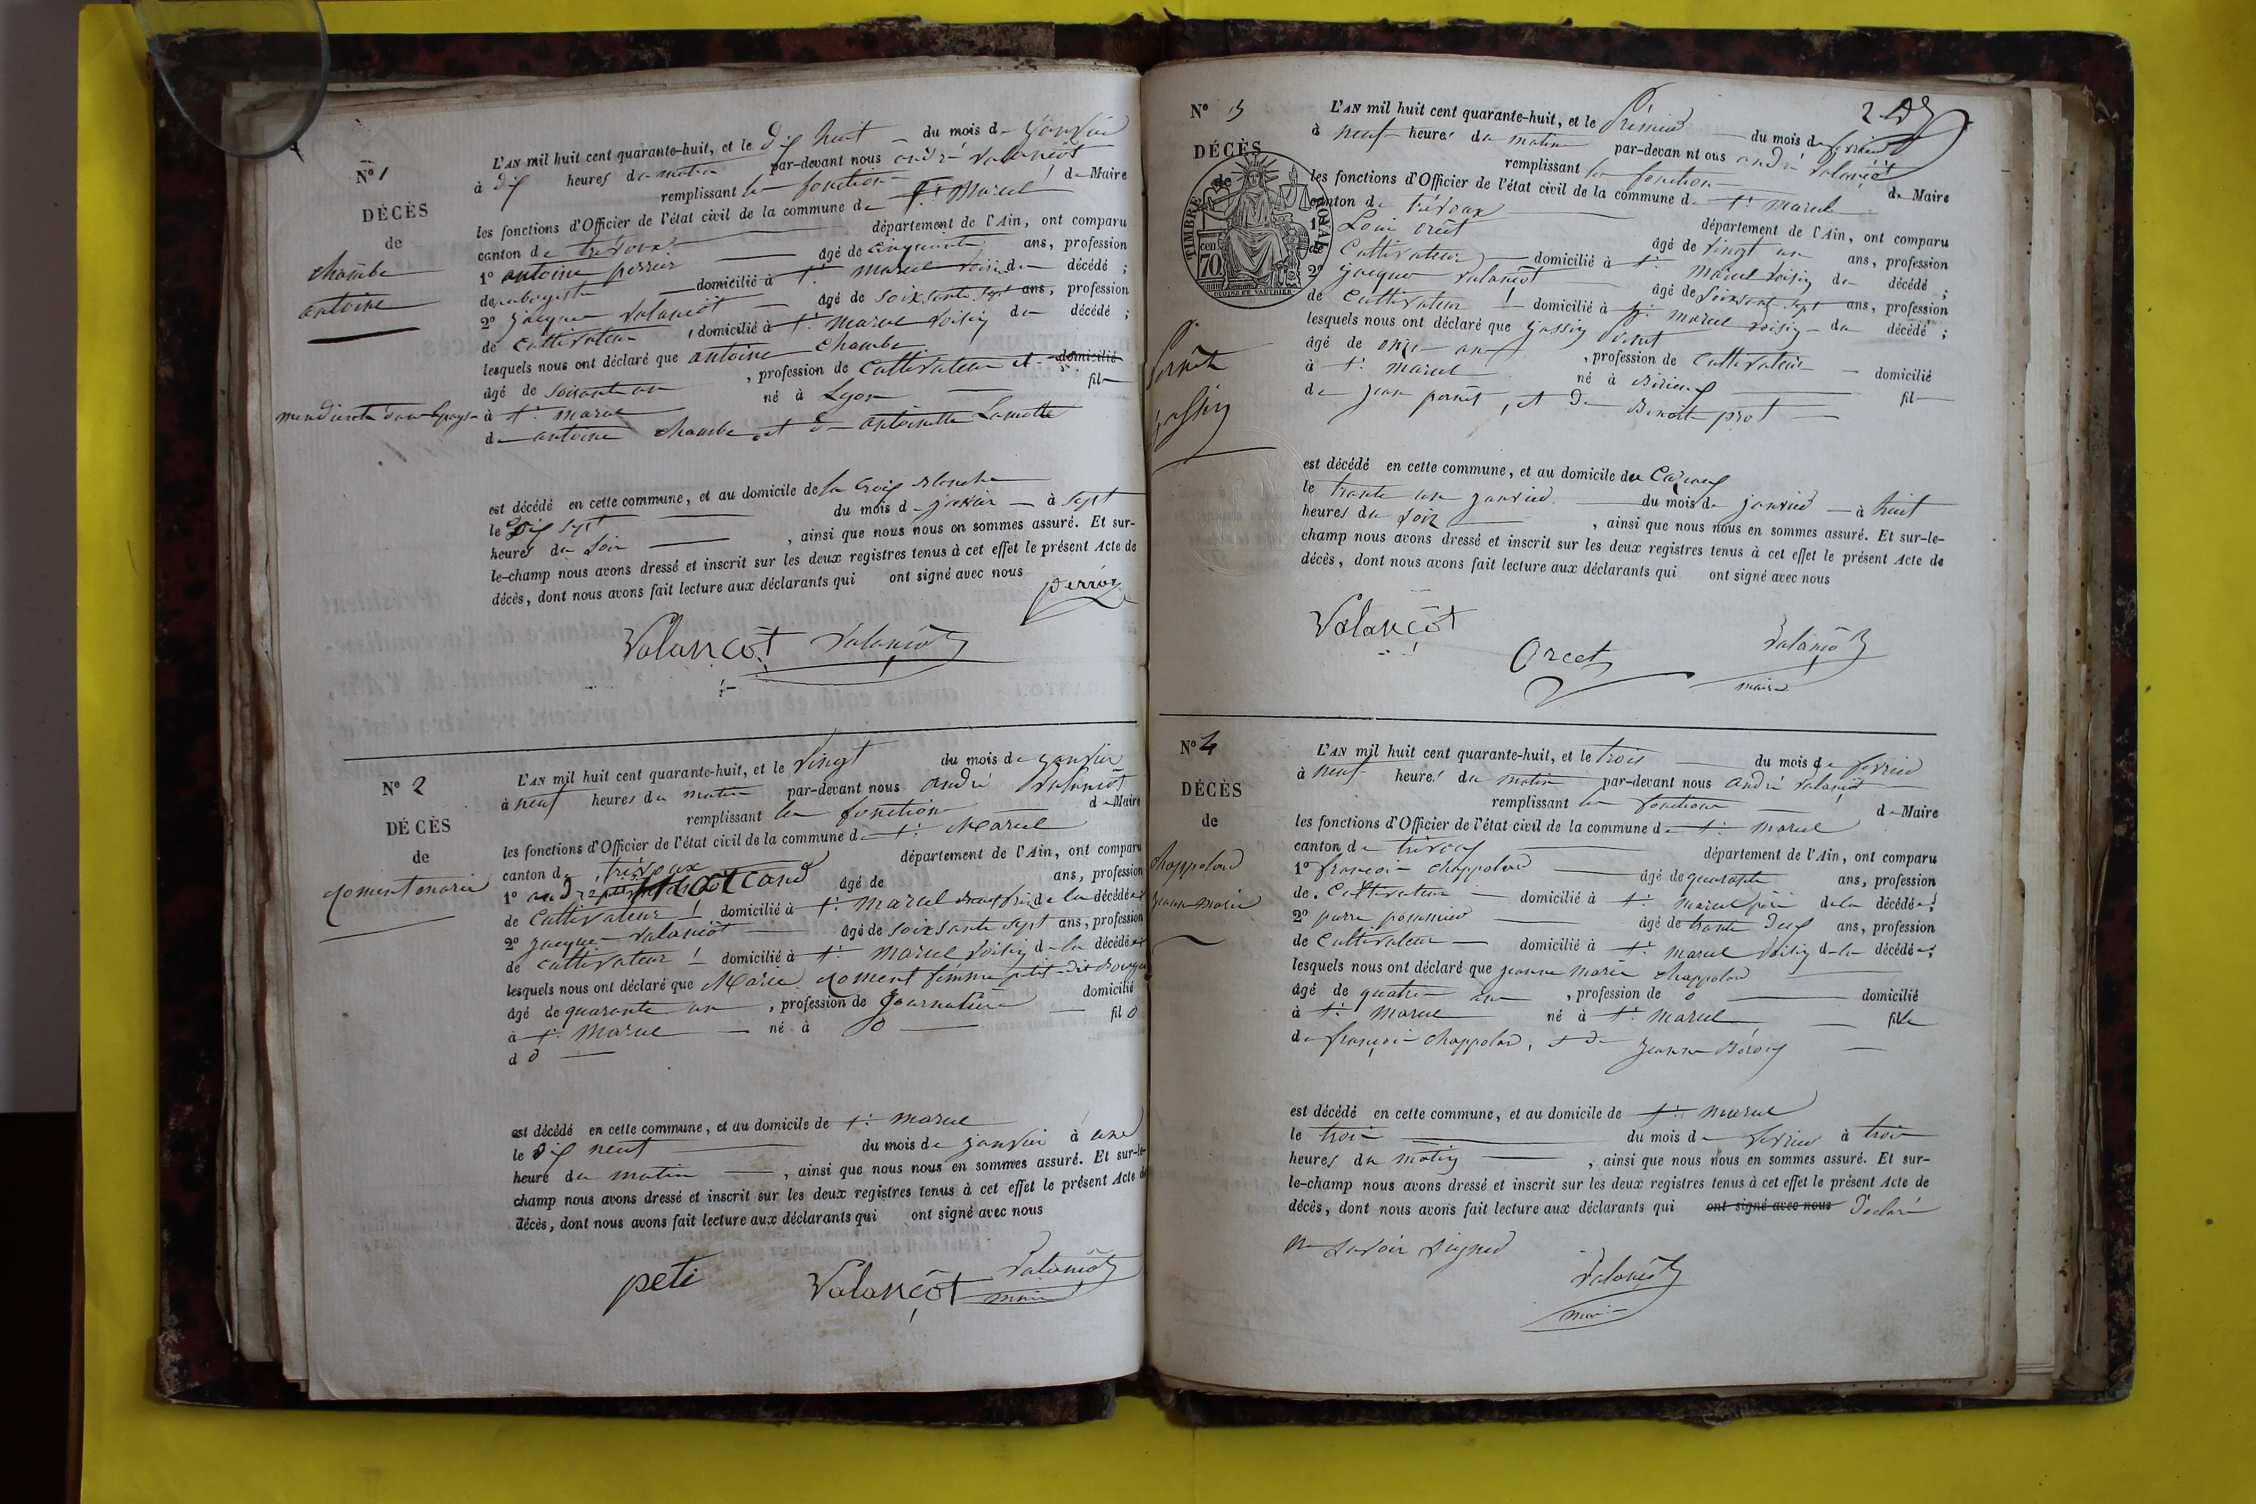 N° 1
DÉCÈS
de
chambe
antoine
mendiante dans le pays
L'AN mil huit cent quarante-huit, et le dix huit du mois de janvier
à dix heures du matin par-devant nous andré valançôt
remplissant les fonction de Maire
les fonctions d'Officier de l'état civil de la commune de St Marcel
canton de trévoux département de l'Ain, ont comparu
1° antoine perrier âgé de cinquante ans, profession
de domicilié à St marcel voisin du décédé ;
2° jacque valançôt âgé de soixsante sept ans, profession
de cultivateur, domicilié à St marcel voisin du décédé ;
lesquels nous ont déclaré que antoine chambe
âgé de soixante an, profession de cultivateur et domicilié
à St marcel né à Lyon fil
de antoine chambe et de antoinette Lamotte
est décédé en cette commune, et au domicile de la croix blanche
le dix sept du mois de janvier à sept
heures du soir, ainsi que nous nous en sommes assuré. Et sur-
le-champ nous avons dressé et inscrit sur les deux registres tenus à cet effet le présent Acte de
décès, dont nous avons fait lecture aux déclarants qui ont signé avec nous
Valançôt valançôt
N° 2
DÉCÈS
de
L'AN mil huit cent quarante-huit, et le vingt du mois de janvier
à neuf heures du matin par-devant nous andré valançôt
remplissant les fonction de Maire
les fonctions d'Officier de l'état civil de la commune de St Marcel
canton de trévoux département de l'Ain, ont comparu
1° âgé de ans, profession
de cultivateur domicilié à St marcel de la décédé
2° jacque valançôt âgé de soixsante sept ans, profession
de cultivateur domicilié à St marcel voisin de la décédé
lesquels nous ont déclaré que Marie femme petit dit
âgé de quarante an, profession de journalière domicilié
à St Marcel né à 0 fil 0
d 0
est décédé en cette commune, et au domicile de St marcel
le dix neuf du mois de janvier à une
heure du matin, ainsi que nous nous en sommes assuré. Et sur-le-
champ nous avons dressé et inscrit sur les deux registres tenus à cet effet le présent Acte de
décès, dont nous avons fait lecture aux déclarants qui ont signé avec nous
peti Valançôt valançôt
maire
2
N° 3
DÉCÈS
de
TIMBRE ROYAL
70 cen
Pernêt
jassin
L'AN mil huit cent quarante-huit, et le Premier du mois de fevrier
à neuf heures du matin par-devan nt ous andré valançôt
remplissant les fonction de Maire
les fonctions d'Officier de l'état civil de la commune de St marcel
canton de trévoux département de l'Ain, ont comparu
1° Loui orcet âgé de vingt un ans, profession
de Cultivateur domicilié à St Marcel voisin du décédé ;
2° jacque valançôt âgé de soixsante sept ans, profession
de cultivateur domicilié à St marcel voisin du décédé ;
lesquels nous ont déclaré que jassin
âgé de onze an, profession de cultivateur domicilié
à St marcel né à fil
de jean pernêt, et de Benoîte prost
est décédé en cette commune, et au domicile du
le trante un janvier du mois de janvier à huit
heures du soir, ainsi que nous nous en sommes assuré. Et sur-le-
champ nous avons dressé et inscrit sur les deux registres tenus à cet effet le présent Acte de
décès, dont nous avons fait lecture aux déclarants qui ont signé avec nous
Valançôt Orcet valançôt
maire
N° 4
DÉCÈS
de
chappolard
jeanne marie
L'AN mil huit cent quarante-huit, et le trois du mois de fevrier
à neuf heures du matin par-devant nous andré valançôt
remplissant les fonctions de Maire
les fonctions d'Officier de l'état civil de la commune de St marcel
canton de trévoux département de l'Ain, ont comparu
1° françoi chappolard âgé de quarante ans, profession
de Cultivateur domicilié à St marcel père de la décédé
2° pierre âgé de trante deux ans, profession
de Cultivateur domicilié à St marcel voisin de la décédé
lesquels nous ont déclaré que jeanne marie chappolard
âgé de quatre an, profession de 0 domicilié
à St marcel né à St marcel fille
de françoi chappolard, et de jeanne
est décédé en cette commune, et au domicile de St marcel
le troi du mois de fevrier à troi
heures du matin, ainsi que nous nous en sommes assuré. Et sur-
le-champ nous avons dressé et inscrit sur les deux registres tenus à cet effet le présent Acte de
décès, dont nous avons fait lecture aux déclarants qui ont signé avec nous déclaré
ne savoir signer
valançôt
maire